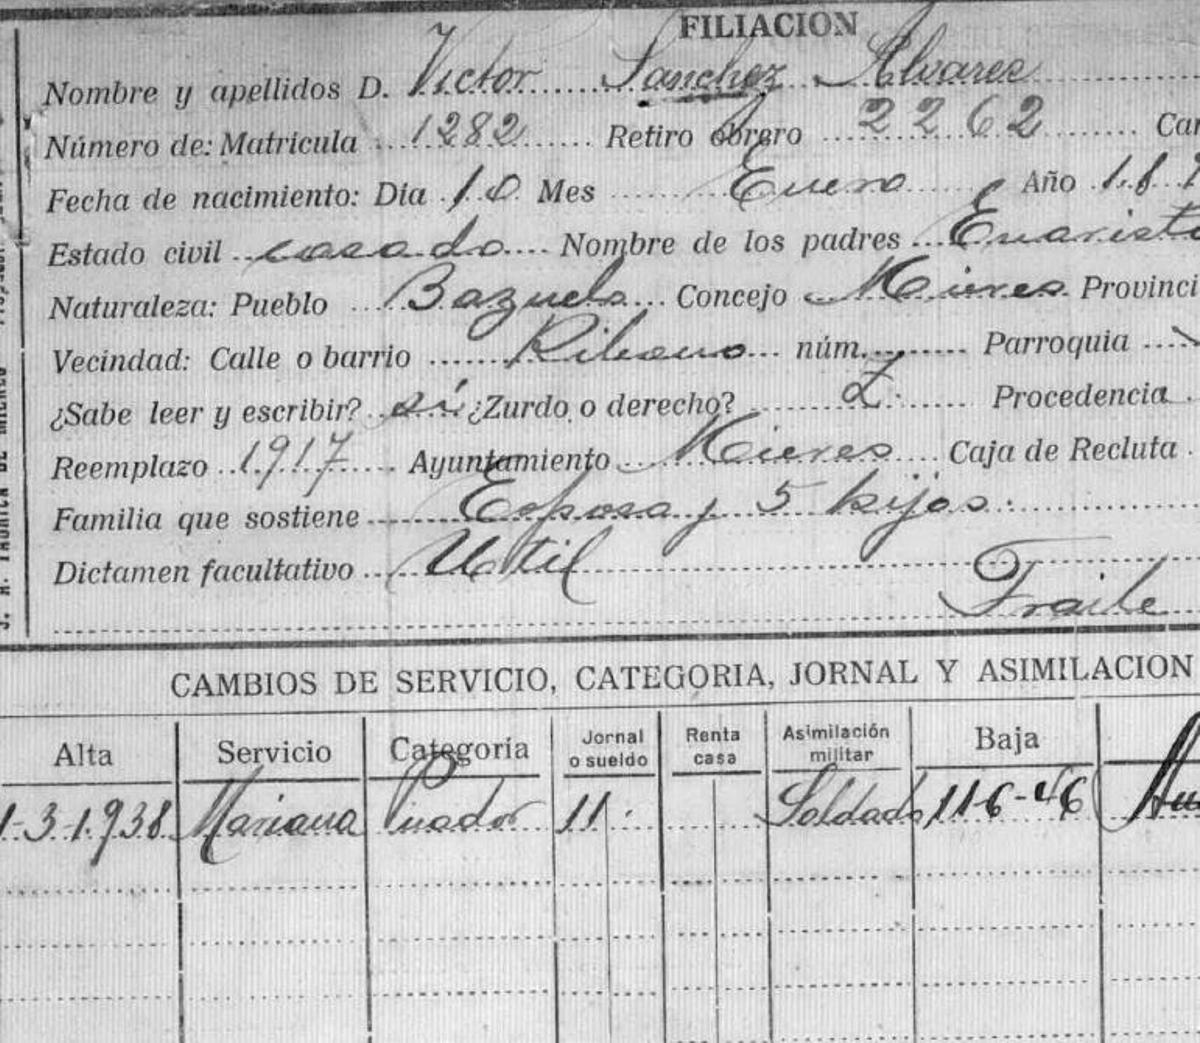 FILIACION
Nombre y apellidos D. Victor Sanchez Alvarez
Número de: Matricula 1282 Retiro obrero 2262 Car
Fecha de nacimiento: Dia 10 Mes Enero Año 1.8
Estado civil casado Nombre de los padres Evaristo
Naturaleza: Pueblo Bazuelo Concejo Mieres Provinci
Vecindad: Calle o barrio núm. Parroquia
¿Sabe leer y escribir? sí ¿Zurdo o derecho? Z. Procedencia
Reemplazo 1917 Ayuntamiento Mieres Caja de Recluta
Familia que sostiene Esposa y 5 hijos.
Dictamen facultativo Util
Fraile
CAMBIOS DE SERVICIO, CATEGORIA, JORNAL Y ASIMILACION
Alta Servicio Categoría Jornal o sueldo Renta casa Asimilación militar Baja
1-3-1.938 Mariana Picador 11 Soldado 11-6-46